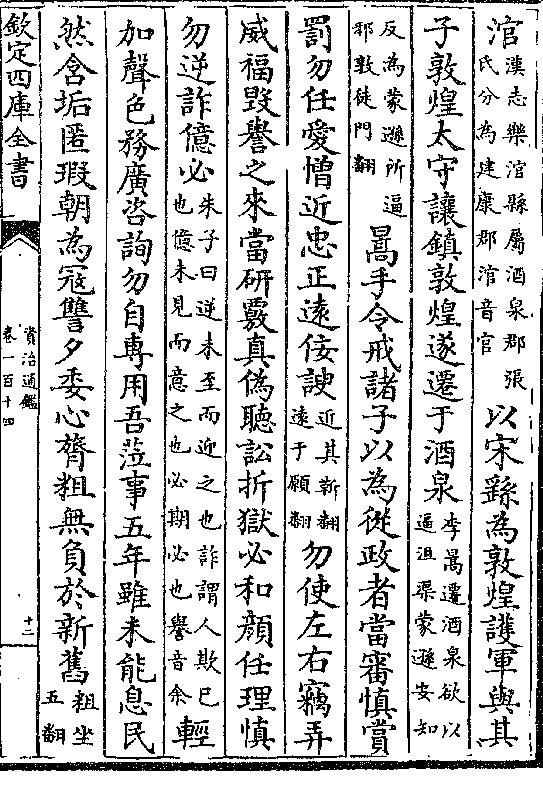 涫漢志樂涫縣屬酒泉郡張氏分為建康郡涫音官以宋繇為敦煌護軍與其
子敦煌太守讓鎮敦煌遂遷于酒泉李暠遷酒泉欲以逼沮渠蒙遜安知
反為蒙遜所逼邪敦徒門翻暠手令戒諸子以為從政者當審慎賞
罰勿任愛憎近忠正遠佞諛近其靳翻遠于願翻勿使左右竊弄
威福毀譽之來當研覈真偽聽訟折獄必和顔任理慎
勿逆詐億必朱子曰逆未至而迎之也詐謂人欺已也億未見而意之也必期必也譽音余輕
加聲色務廣咨詢勿自專用吾莅事五年雖未能息民
然含垢匿瑕朝為寇讐夕委心膂粗無負於新舊粗坐五翻
欽定四庫全書
資治通鑑
卷一百十四
十二